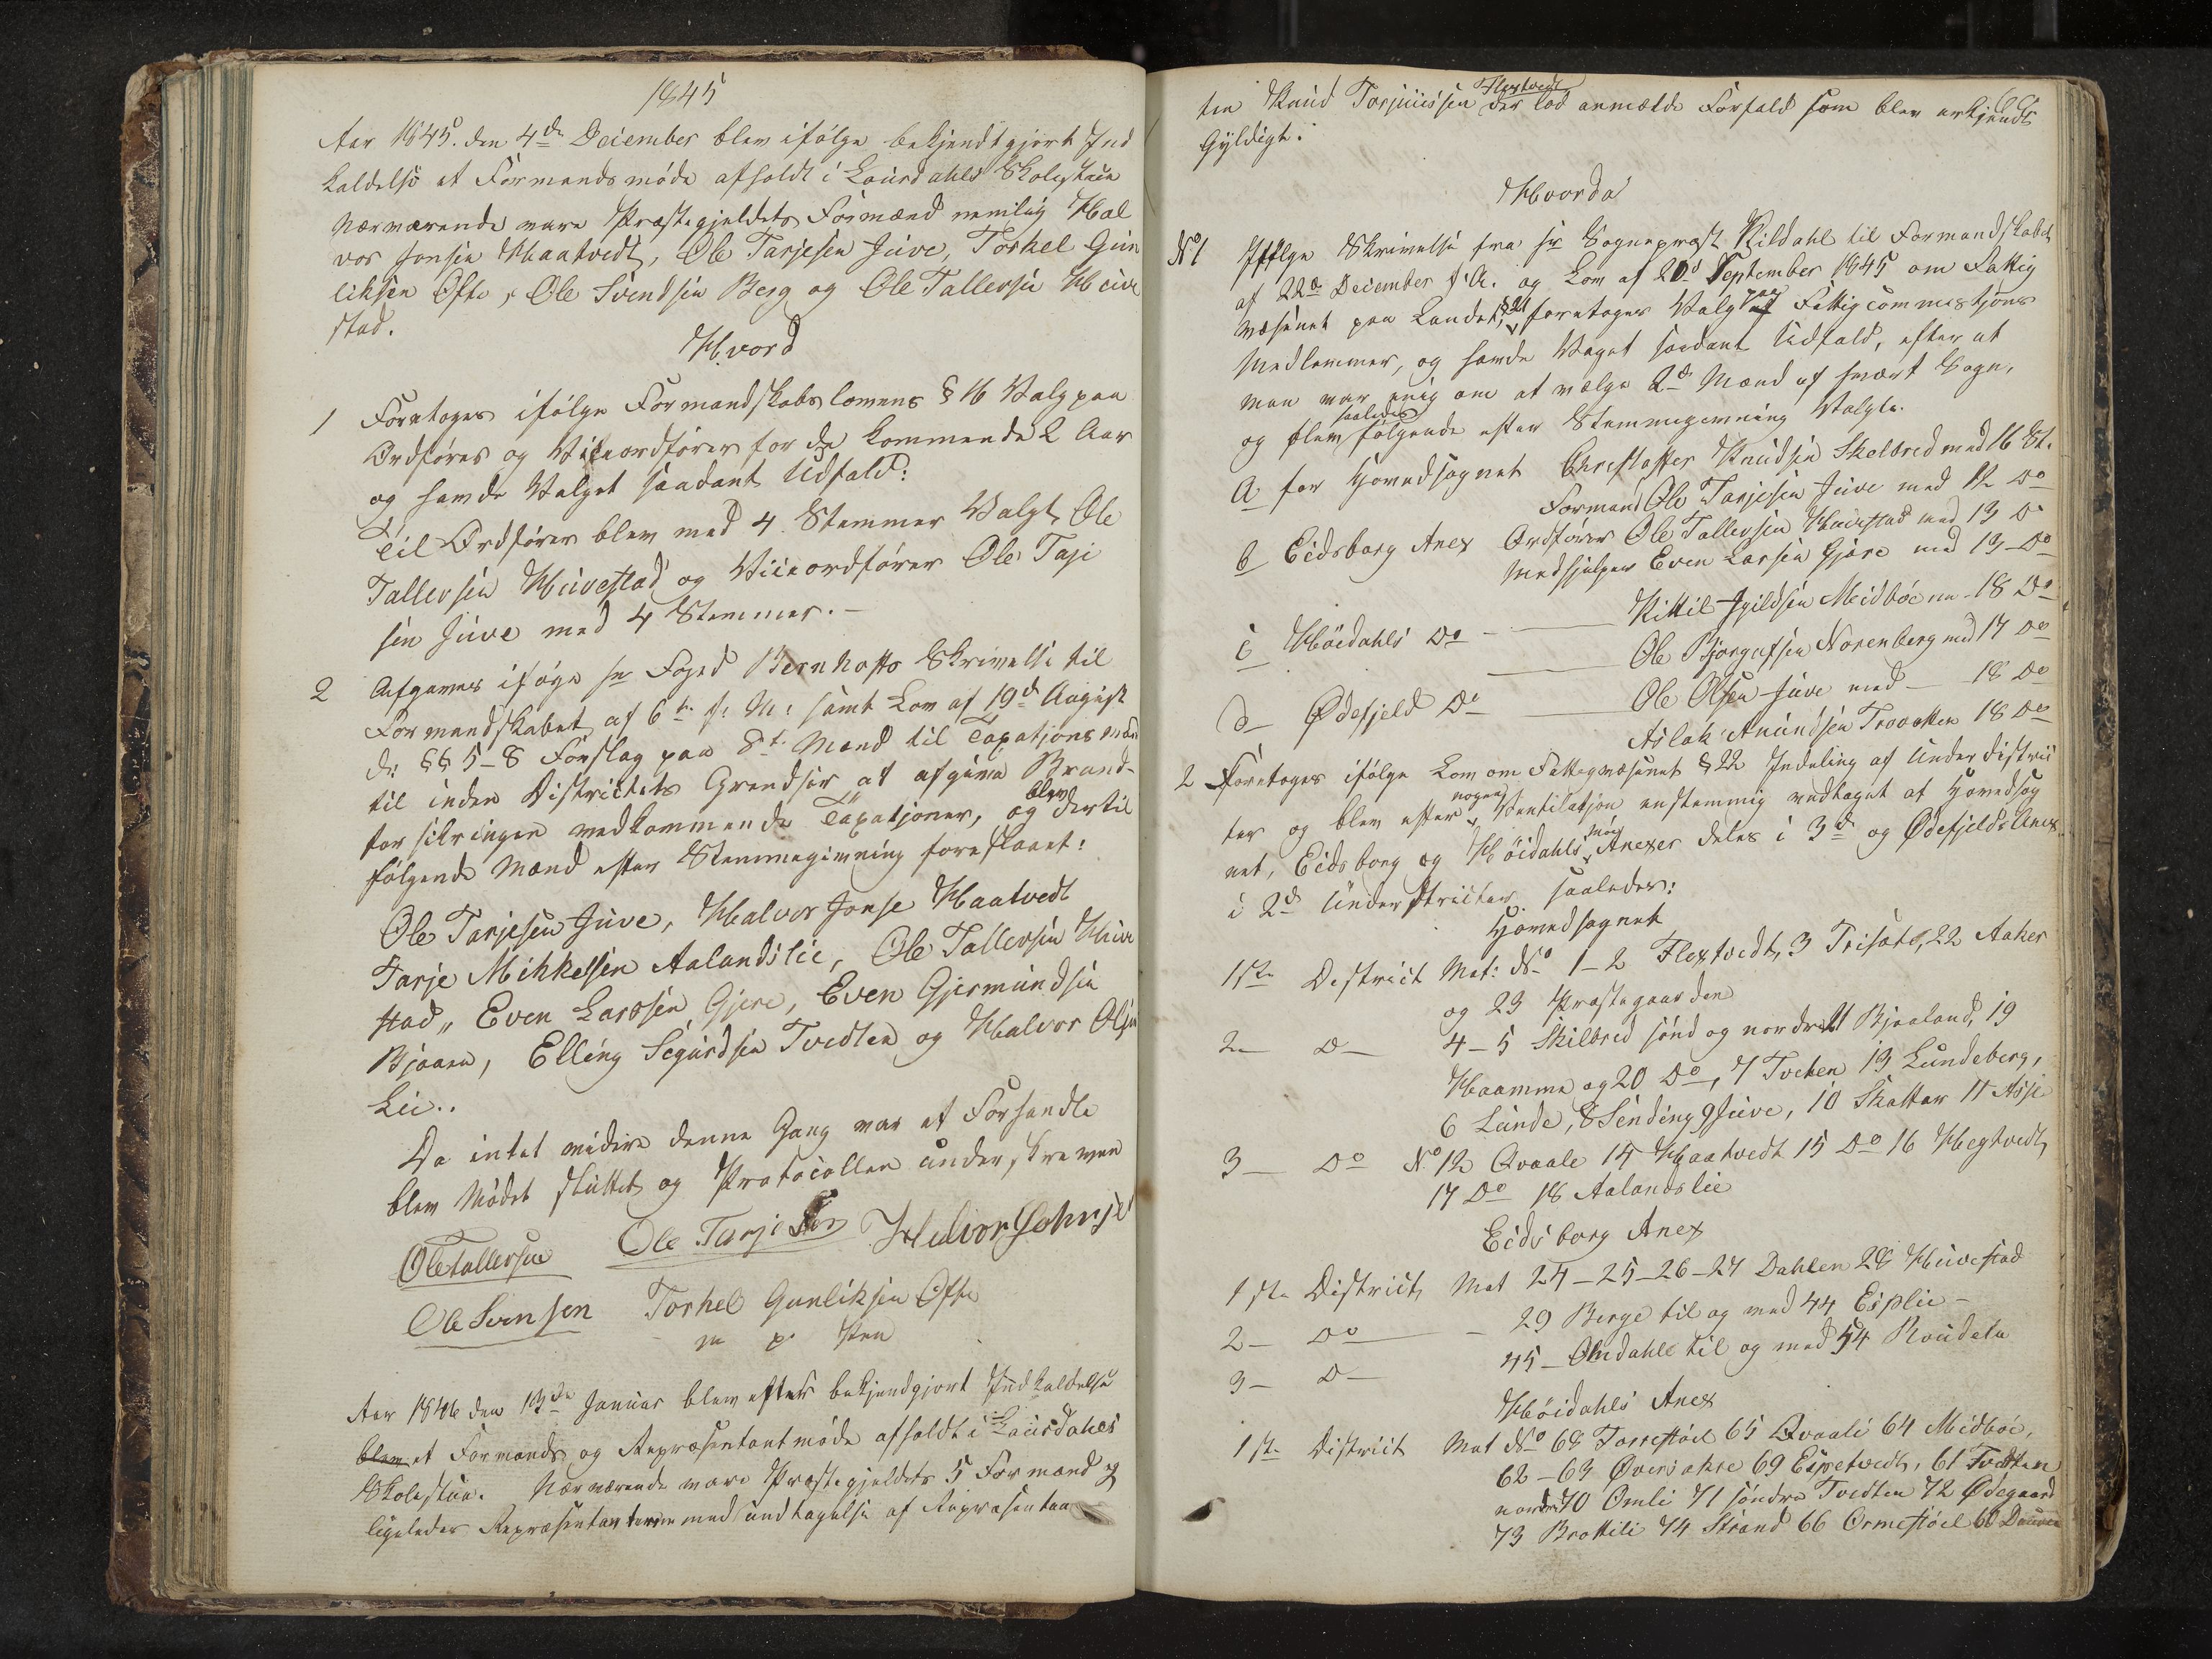 1845
Aar 1845. den 4de December blev ifølge bekjendtgjort Ind
kaldelse et Formandsmøde afholdt i Laurdahls Skolestue
Nærværende vare Præstegjeldets Formænd nemlig Hal
vor Jonsen Haatvedt, Ole Tarjesen Juve, Torkel Gun
liksen Ofte, Ole Svendsen Berg og Ole Tallevsen Huve
stad.
Hvord
1 Foretoges ifølge Formandskabslovens § 16 Valg paa
Ordfører og Viceordfører for de kommende 2 Aar
og havde Valget saadant Udfald:
Til Ordfører blev med 4 Stemmer Valgt Ole
Tallevsen Huvestad og Viceordfører Ole Taje
sen Juve med 4 Stemmer. -
2 Afgaves iføge hr Foged Bernhofts Skrivelse til
Formandskabet af 6te f: M: samt Lov af 19de August
d: §§ 5-8 Forslag paa 8te Mænd til Taxatjonsmænd
til inden Districtets Grændser at afgive Brand-
forsikringen vedkommende Taxatjoner, og blev dertil
følgende Mænd efter Stemmegivning foreslaaet:
Ole Tarjesen Juve, Halvor Jonse Haatvedt
Tarje Mikkelsen Aalandslie, Ole Tallevsen Huve
stad, Even Larssen Gjere, Even Gjermundsen
Bjaaen, Elling Sigurdsen Tvedten og Halvor Olsen
Lii..
Da intet videre denne Gang var at Forhandle
blev Mødet sluttet og Protocollen underskreven
Ole Tallevsen Ole Tarjesen Halvor Johnsen
Ole Svensen Torkel Gunliksen Ofte
m p Pen
Aar 1846 den 13de Januar blev efter bekjendgjort Indkaldelse
blev et Formands og Repræsentantmøde afholdt i Laurdahls
Skolestue. Nærværende vare Præstegjeldets 5 Formænd og
ligeledes Repræsentanterne med undtagelse af Repræsentan
ten Knud Torjuussen Flextvedt der lod anmelde Forfald som blev erkjendt
Gyldigt.
Hvorda
No 1 Ifølge Skrivelse fra hr Sognepræst Kildahl til Formandskabet
af 22de December f. A. og Lov af 20de September 1845 om Fattig
væsenet paa Landet, § 21 foretoges Valg paa Fattigcommissjons
Medlemmer, og havde Vaget saadant Udfald, efter at
man var enig om at vælge 2de Mænd af hvert Sogn,
og blev saaledes følgende efter Stemmegivning Valgte.
a for Hovedsognet Christoffer Knudsen Skelbred med 16 St.
Formand Ole Tarjesen Juve med 12 Do
b Eidsborg Anex Ordfører Ole Tallevsen Huvestad med 13 Do
Medhjelper Even Larsen Gjøre med 13 Do
c Høidahls Do - Kittil Igildsen Meidbøe m 18 Do
Ole Bjørgufsen Norenberg med 17 Do
d Ødefjeld Do Ole Olsen Juve med - 18 Do
Aslak Anundsen Trovatten 18 Do
2 Foretoges ifølge Lov om Fattigvæsenet § 22 Indeling af Underdistric
ter og blev efter nogen Ventilatjon enstemmig vedtaget at Hovedsog
net, Eidsborg og Høidahls Anexer deles i 3de og Ødefjelds Anex
i 2de Underdistricter saaledes:
Hovedsognet
1ste District Mat: No 1-2 Flextvedt, 3 Trisæt, 22 Aaker
og 23 Præstegaarden
2 - D - 4-5 Skilbred sønd og nordre 21 Bjaaland, 19
Haamme og 20 Do, 7 Tveten 13 Lundeberg,
6 Lunde, 8 Sending 9 Juve, 10 Skattar 11 Asje
3 - Do No 12 Qvaale 14 Haatvedt 15 Do 16 Hegtvedt,
17 Do 18 Aalandslie
Eidsborg Anex
1ste District, Mat 24-25-26-27 Dahlen 28 Huvestad
2 - Do - 29 Berge til og med 44 Eiplie -
3 - D - 45 - Omdahle til og med 54 Rondela
Høidahls Anex
1ste District Mat No 68 Torrestøil 65 Qvaale 64 Midbøe,
62-63 Øversakre 69 Espetvedt, 61 Tvedten
nordre 70 Omli 71 søndre Tvedten 72 Ødegaard
73 Brottili 74 Strand 66 Ormestøil 60